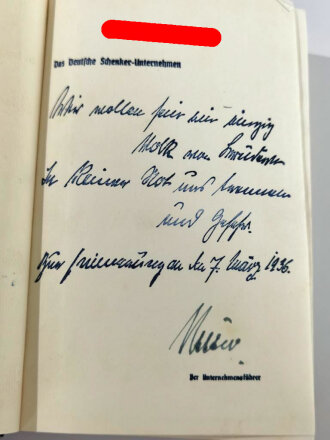 Das Deutsche Schenker-Unternehmen
Wir wollen sein ein einzig
Volk von Brüdern
In keiner Not uns trennen
und Gefahr.
Zur Erinnerung an den 7. März 1936
Der Unternehmensführer